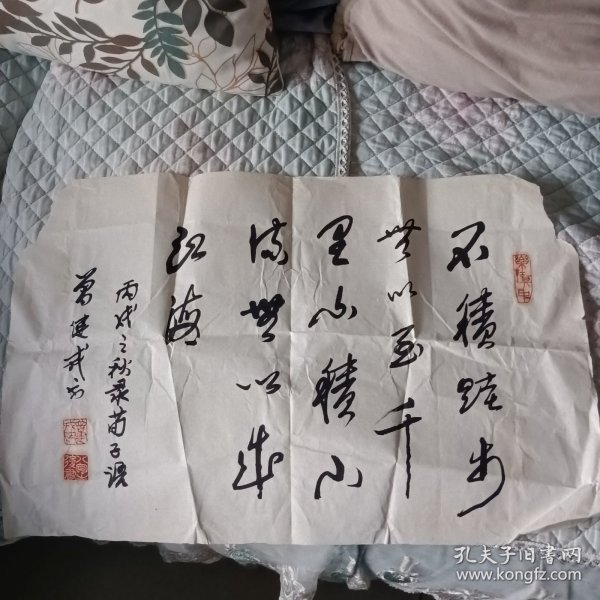 不積跬步
無以至千
里不積小
流無以成
江海
丙戌之秋录荀子语
曾建武书
孔夫子旧书网
www.kongfz.com